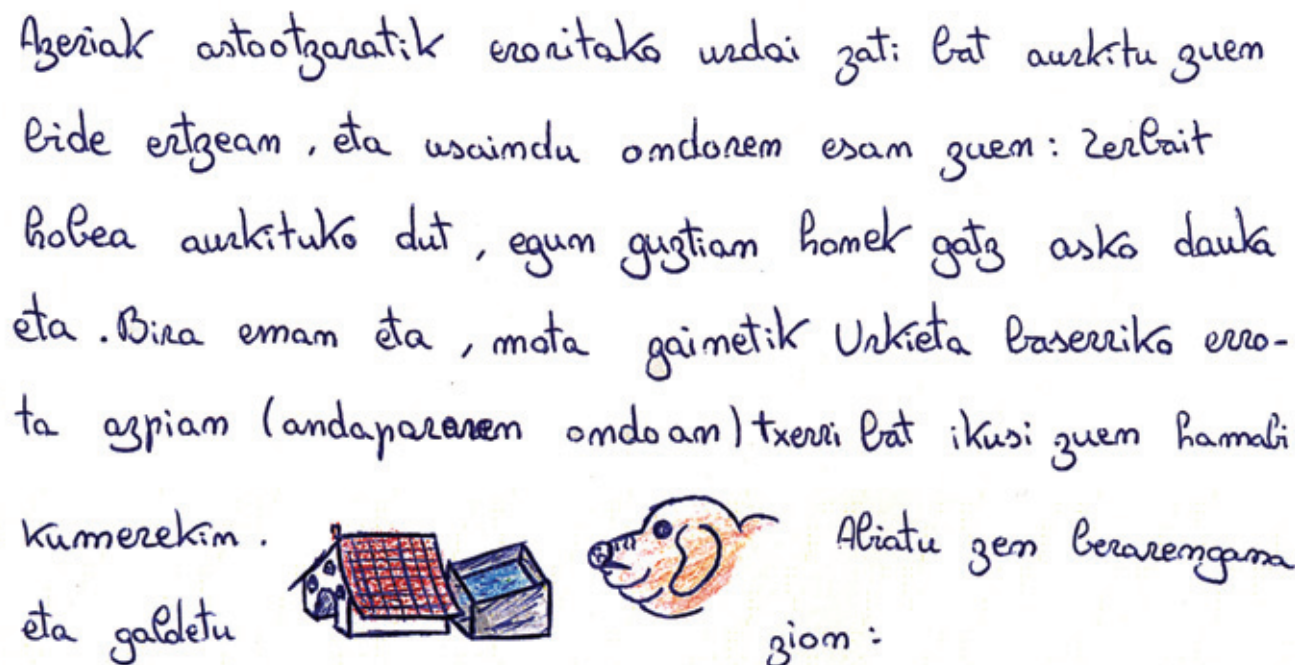 Azeriak astaotzaratik eroritako urdai zati bat aurkitu zuen
bide ertzean, eta usaindu ondoren esan zuen: Zerbait
hobea aurkituko dut, egun guztian honek gatz asko dauka
eta. Bira eman eta, mota gainetik Urkieta baserriko erro-
ta azpian (andapararen ondoan) txerri bat ikusi zuen hamabi
kumerekin. Abiatu zen berarengana
eta galdetu zion: